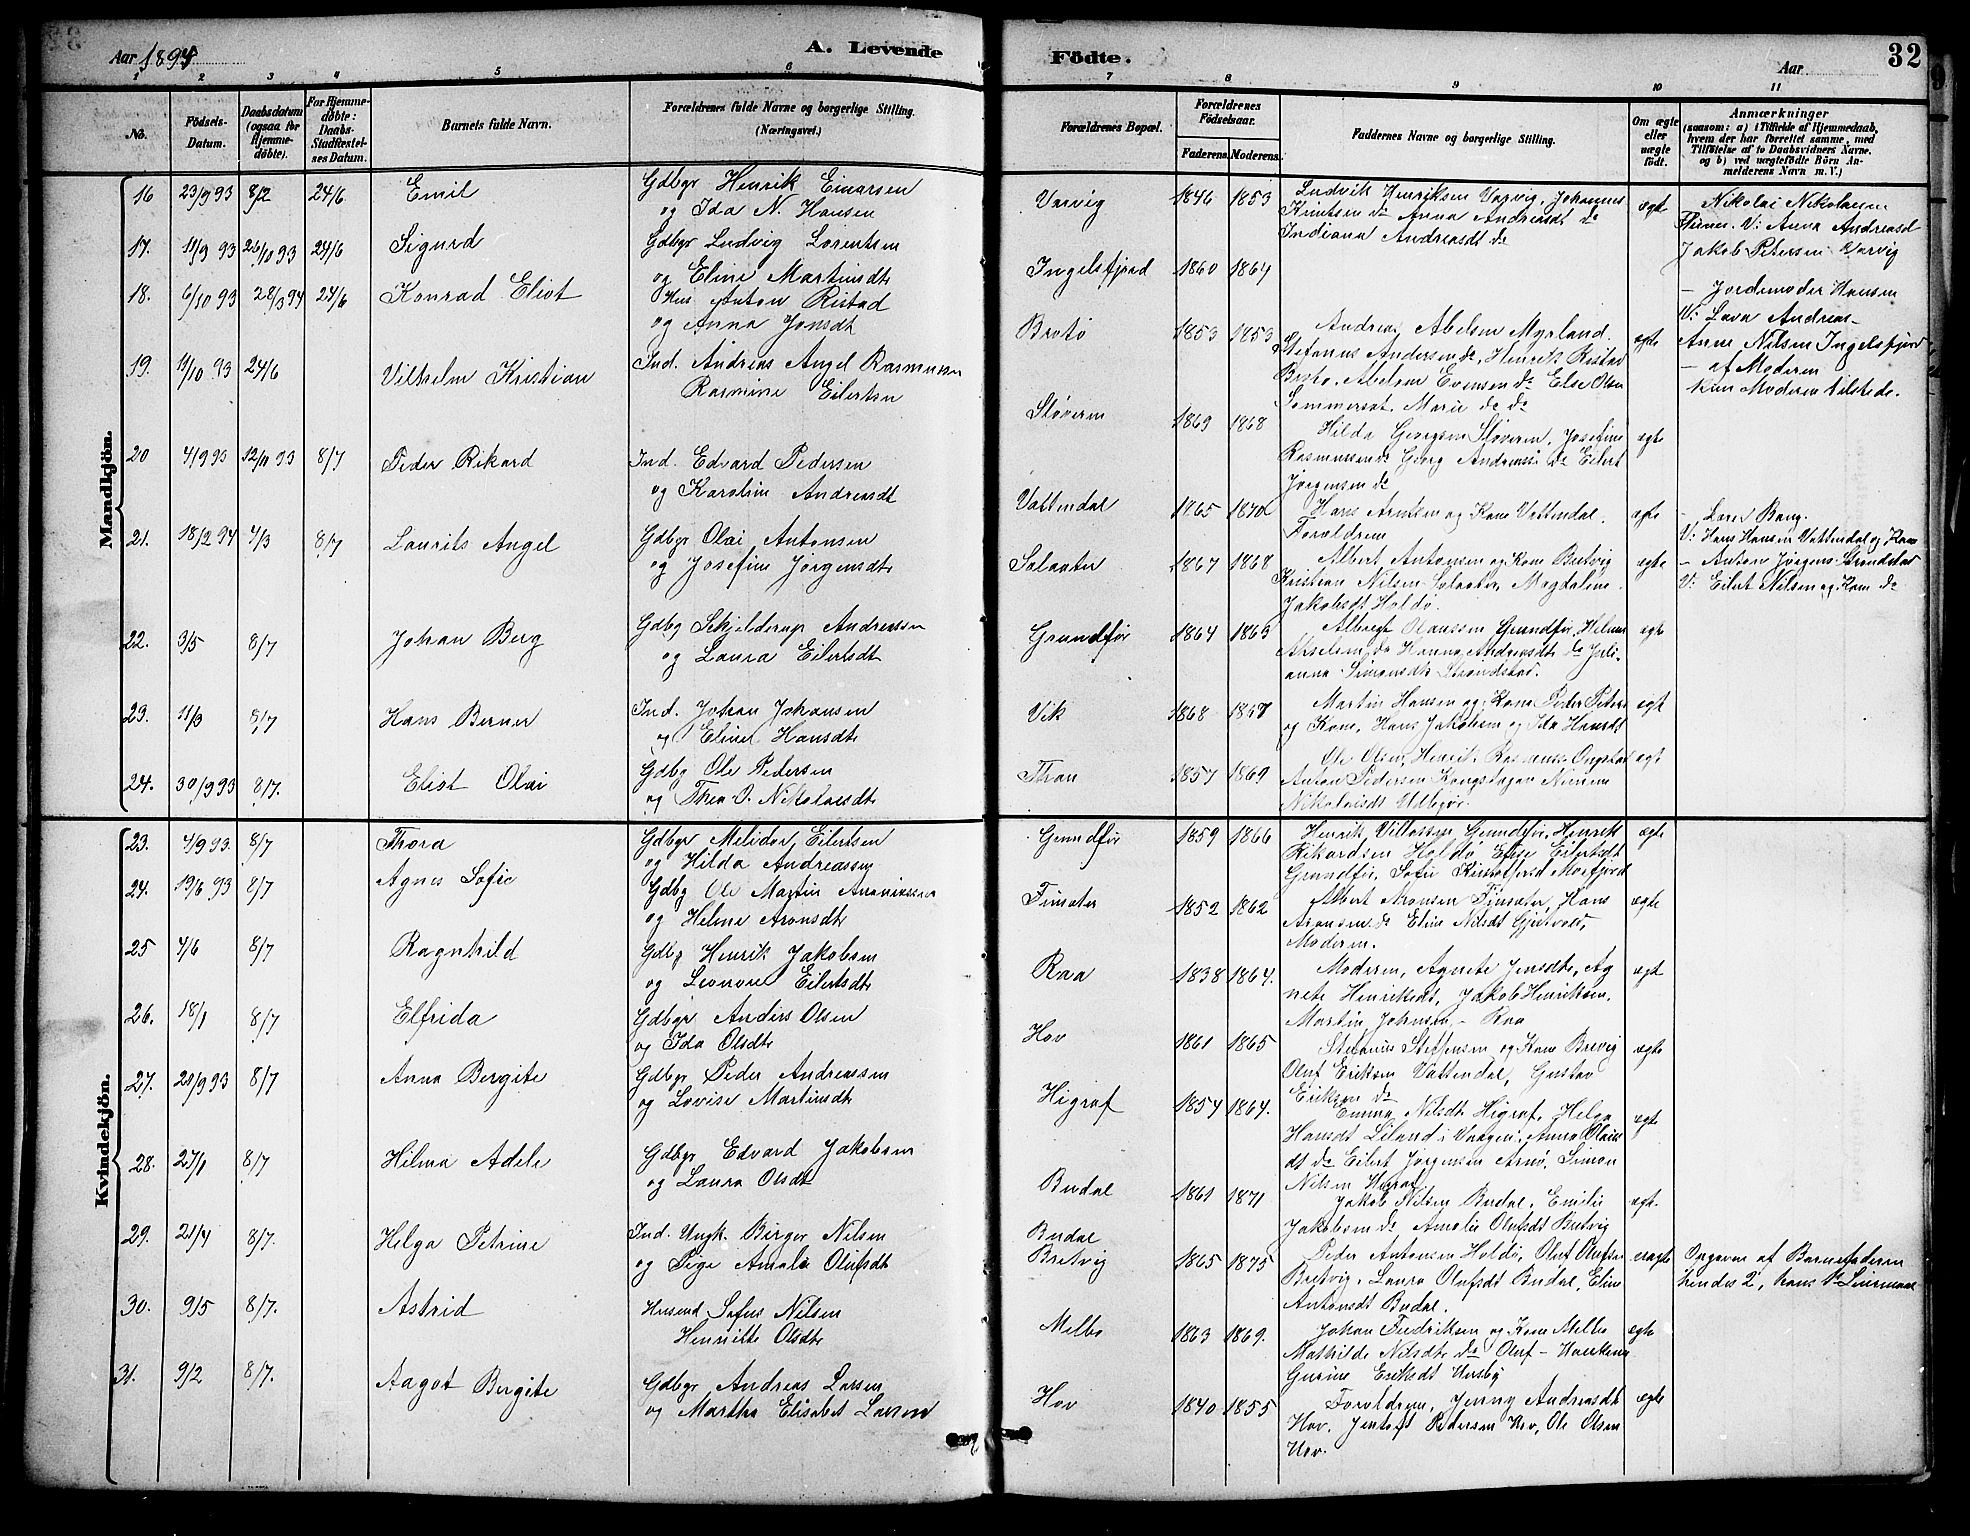 Aar 1894
A. Levende
Födte.
Aar
32
1 2 3 4 5 6 7 8 9 10 11
No.
Födsels-Datum.
Daabsdatum (ogsaa for Hjemmedöbte).
For Hjemmedöbte: Daabs-Stadfæstelses Datum.
Barnets fulde Navn.
Forældrenes fulde Navne og borgerlige Stilling. (Næringsvei.)
Forældrenes Bopæl.
Forældrenes Födselsaar.
Faderens. Moderens.
Faddernes Navne og borgerlige Stilling.
Om ægte eller uægte födt.
Anmærkninger (saasom: a) i Tilfælde af Hjemmedaab, hvem der har forrettet samme, med Tilföielse af to Daabsvidners Navne, og b) ved uægtefödte Börn Anmelderens Navn m. V.)
Mandkjön.
16 23/9 93 8/2 24/6 Emil
Gdbgr Henrik Einarsen
og Ida N. Hansen
Varvig 1846 1853
Ludvik Henriksen Varvig, Johannes
Knutsen do Anna Andreasdt do
Indiana Andreasdt do
ægte
Nikolai Nikolaisen
V: Anna Andreasd
Jakob Petersen Varvig
17. 11/9 93 26/10 93 24/6 Sigurd
Gdbgr Ludvig Lorentsen
og Eline Martinsdt
Ingelsfjord 1860 1864
– Jordemoder Hansen
V: Lava Andreas–
Anne Nilsen Ingelsfjord
18. 6/10 93 28/3 94 24/6 Konrad Eliot
Hus Anton Ristad
og Anna Jonsdt
Brotö 1853 1853
Andreas Abelsen Myrland
Stefanus Andersen do, Henrik Ristad
Brotö, Abelsem Evensen do Else Olsen
Sommersæt, Marie do do
ægte
– af Moderen
Kun Moderen tilstede.
19. 11/10 93 24/6 Vilhelm Kristian
Ind. Andreas Angel Rasmussen
Rasmine Eilertsen
Slöveren 1869 1868
Hilda Georgsen Slöveren, Josefine
Rasmussen do Georg Andreass do Eilert
Jörgensen do
ægte
20 4/9 93 12/11 93 8/7 Peder Rikard
Ind. Edvard Pedersen
og Karoline Andreasdt
Vattendal 1865 1870
Hans Arntsen og Kone Vattendal,
Foreldrene
ægte
– Bang.
V: Hans Hansen Vattendal og Kone
21. 18/2 94 7/3 8/7 Laurits Angel
Gdbgr Olai Antonsen
og Josefine Jörgensdt
Solaater 1867 1868
Albert Antonsen og Kone Bretvig
Kristian Nilsen Solaater, Magdaline
Jakobsdt Holdö.
ægte
– Anton Jörgens. Strandstad
V: Eilert Nilsen og Kone do
22. 3/5 8/7 Johan Berg
Gdbg Schjelderup Andreassen
og Laura Eilertsdt
Grundför 1864 1863
Albregt Olaussen Grundför, Helmer
Akselsen do Hanna Andreasdt do Juli-
anna Simonsdt Strandstad.
ægte
23. 11/3 8/7 Hans Berner
Ind. Johan Johansen
og Eline Hansdt
Vik 1868 1867
Martin Hansen og Kone Peder Peters
og Kone, Hans Jakobsen og Ida Hansdt
ægt
24. 30/9 93 8/7. Eliot Olai
Gdbg Ole Pedersen
og Thea O. Nikolaisdt
Thran 1857 1869
Ole Olsen, Henrik Rasmuss. Ongstad
Anton Pedersen Kongshagen
Nikolaisdt
ægt
Kvindekjön.
23. 4/9 93 8/7 Thora
Gdbgr Melidor, Eilertsen
og Hilda Andreassen
Grundför 1859 1866
Henrik Villassen Grundför, Henrik
Rikardsen Holdö Else Eilertsdt
Grundför, Sofie Kristoffersd Morfjord
ægte
24. 19/6 93 8/7 Agnes Sofie
Gdbg Ole Martin
og Helene Aronsdt
Finsæter 1852 1862
Albert Aronsen Finsæter, Hans
Aronsen do Eline Nilsdt
Moderen.
ægte
25 4/6 8/7 Ragnhild
Gdbg Henrik Jakobsen
og Leonore Eilertsdt
Raa 1838 1864.
Moderen, Agnete Jensdt, Ag
nete Henriksdt, Jakob Henriksen,
Martin Johnsen – Raa
ægt
26. 18/1 8/7 Elfrida
Gdbgr Anders Olsen
og Ida Olsdt
Hov 1861 1865
Stefanus Steffensen og Kone Brevig
Oluf Eriksen Vattendal, Gustav
Eriksen do
ægte
27. 20/9 93 8/7 Anna Bergite
Gdbgr Peder Andreassen
og Lovise Martinsdt
Higraf 1854 1864.
Emma Nilsdt Higraf, Helga
Hansdt Liland i Vaagen, Anna Olais
dt do Eilert Jörgensen Arnö, Simon
Nilsen Higraf
ægte
28. 27/1 8/7 Hilma Adele
Gdbgr Edvard Jakobsen
og Laura Olsdt
Budal 1861 1871
Jakob Nilsen Budal, Emilie
Jakobsen do Amalie Olufsdt Bretvig
ægt.
29. 21/4 8/7. Helga Petrine
Ind. Ungk. Birger Nilsen
og Pige Amalie Olufsdt
Budal
Bretvig 1865 1875
Peder Antonsen Holdö, Oluf Olufsen
Bretvig, Laura Olufsdt Budal, Eline
Antonsdt Budal.
uægte
Opgaven af Barnefaderen
hendes 2', hans 1ste Leiermaal
30. 9/5 8/7. Astrid
Husmd Sofus Nilsen
Henritte Olsdt
Melbo 1863 1869.
Johan Fredriksen og Kone Melbo
Mathilde Nilsdt do Oluf
Gurine Eriksdt Husby
ægte
31. 9/2 8/7. Aagot Bergite
Gdbgr Andreas Larsen
og Martha Elisabet Larsen
Hov 1840 1855
Foreldrene, Jenny Andreasdt
Hov, Jentoft Pedersen Hov, Ole Olsen
Hov.
ægte